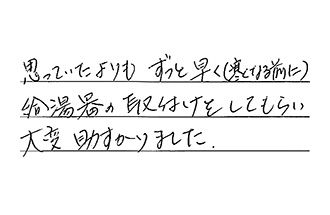 思っていたよりも ずっと早く(寒くなる前に)
給湯器の取付けをしてもらい
大変助すかりました.